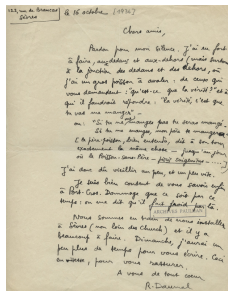 123, rue de Brancas
Sèvres
le 16 octobre (1936)
Chers amis,
Pardon pour mon silence. J'ai eu fort
à faire, au dedans et au dehors (mais surtout
à la jonction des dedans et des dehors, où
j'ai un gros poisson à avaler, de ceux qui
vous demandent : "qu'est-ce que la vérité ?" et à
qui il faudrait répondre : "la vérité, c'est que
tu vas me manger"
ou : "Si tu me manges par te serai mangé.
Si tu me manges, mon père te mangera"
(le père-poisson, bien entendu, dit à son tour,
exactement la même chose — jusqu'au jour
où le Poisson-sans-Père —
J'ai donc dû vieillir un peu, et un peu vite.
Je suis bien content de vous savoir enfin
à Port-Cros. Dommage que ce soit par ce
temps : on me dit qu'il fait froid par là.
Nous sommes en train de nous installer
à Sèvres (non loin des Church) et il y a
beaucoup à faire. Dimanche, j'aurai un
peu plus de temps pour vous écrire. Ceci
pour vous rassurer.
A vous de tout cœur
R. Daumal